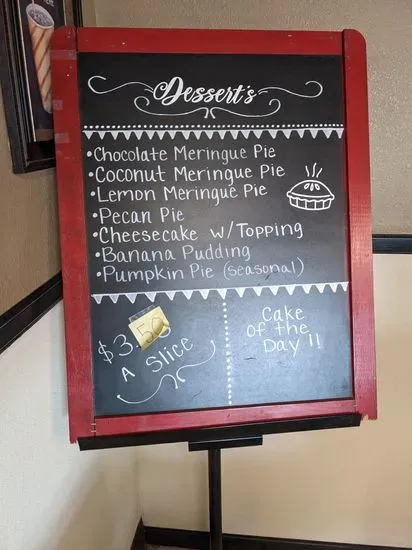 Dessert's
•Chocolate Meringue Pie
•Coconut Meringue Pie
•Lemon Meringue Pie
•Pecan Pie
•Cheesecake w/Topping
•Banana Pudding
•Pumpkin Pie (seasonal)
$3.50
A Slice
Cake
of the
Day !!